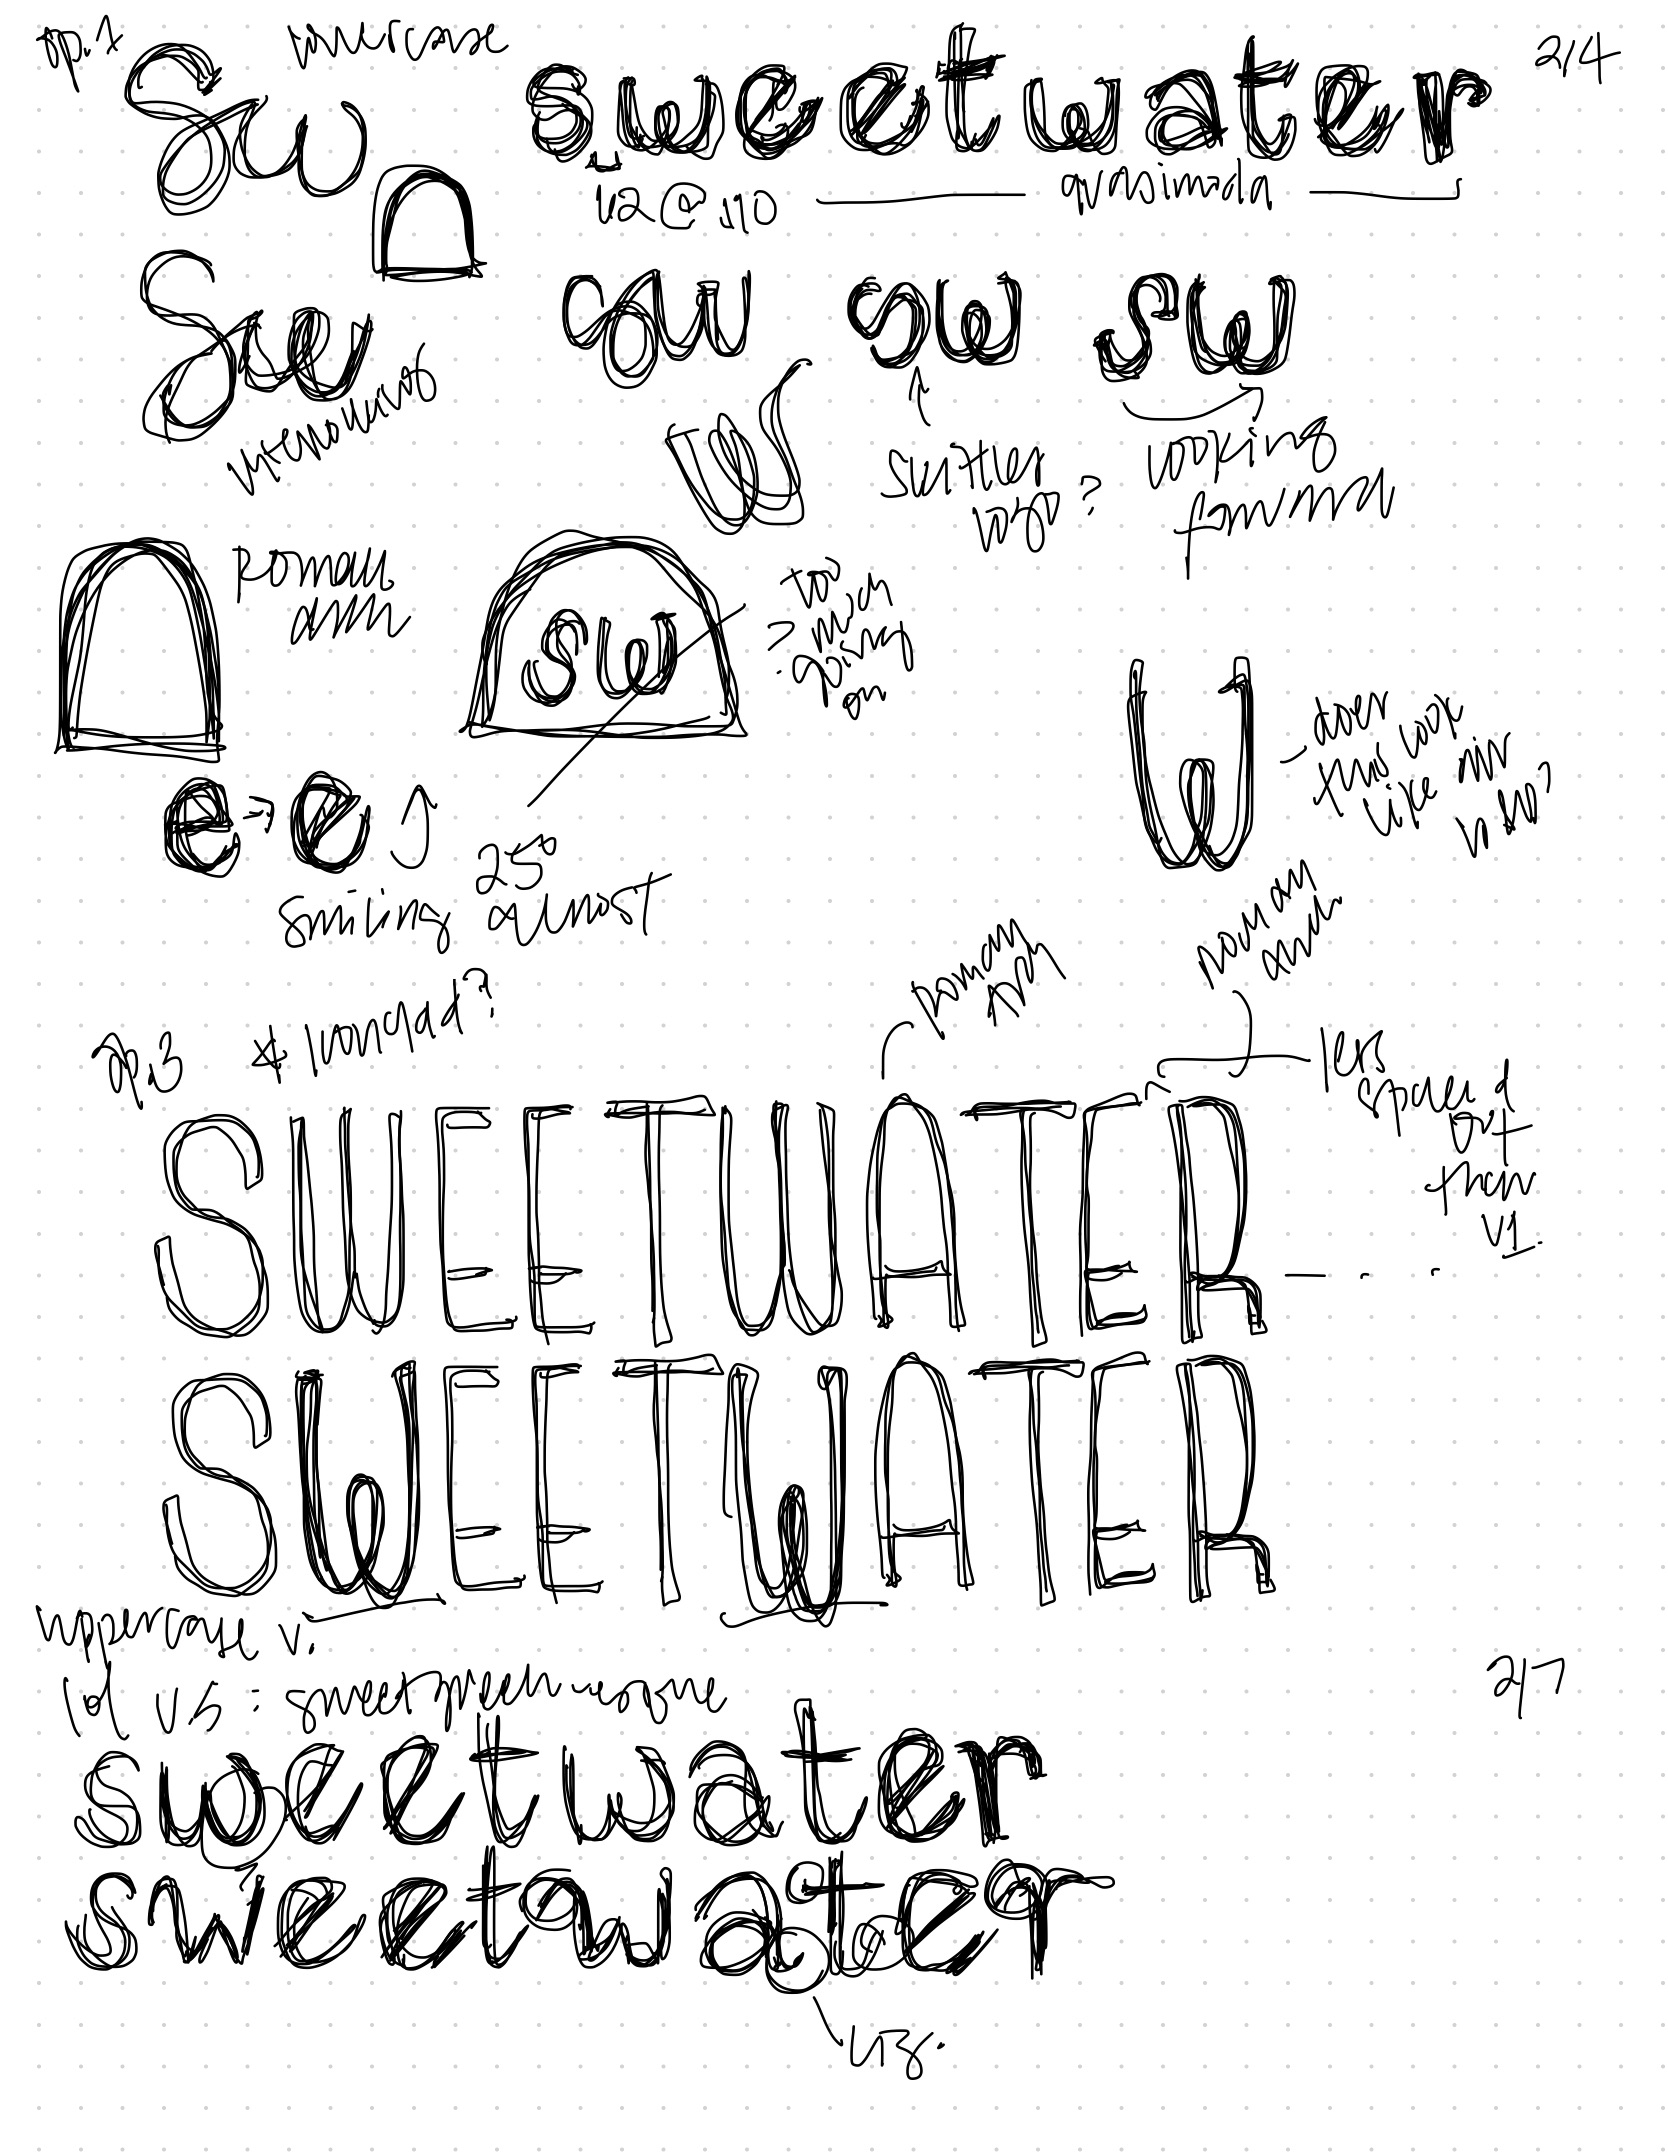 op.1
lowercase
sweetwater
2/4
Sw
v2 @ .110
quasimoda
Sw
sw
sw
sw
w
skittles
logo?
looking
forward
roman
arch
sw
too
much
going
on
w
does
this look
like
e
e
25°
smiling almost
roman
arch
roman
arch
op.3
less
spaced
out
than
v1.
SWEETWATER
SWEETWATER
uppercase v.
lol v5: sweetgreen-esque
2/7
sweetwater
sweetwater